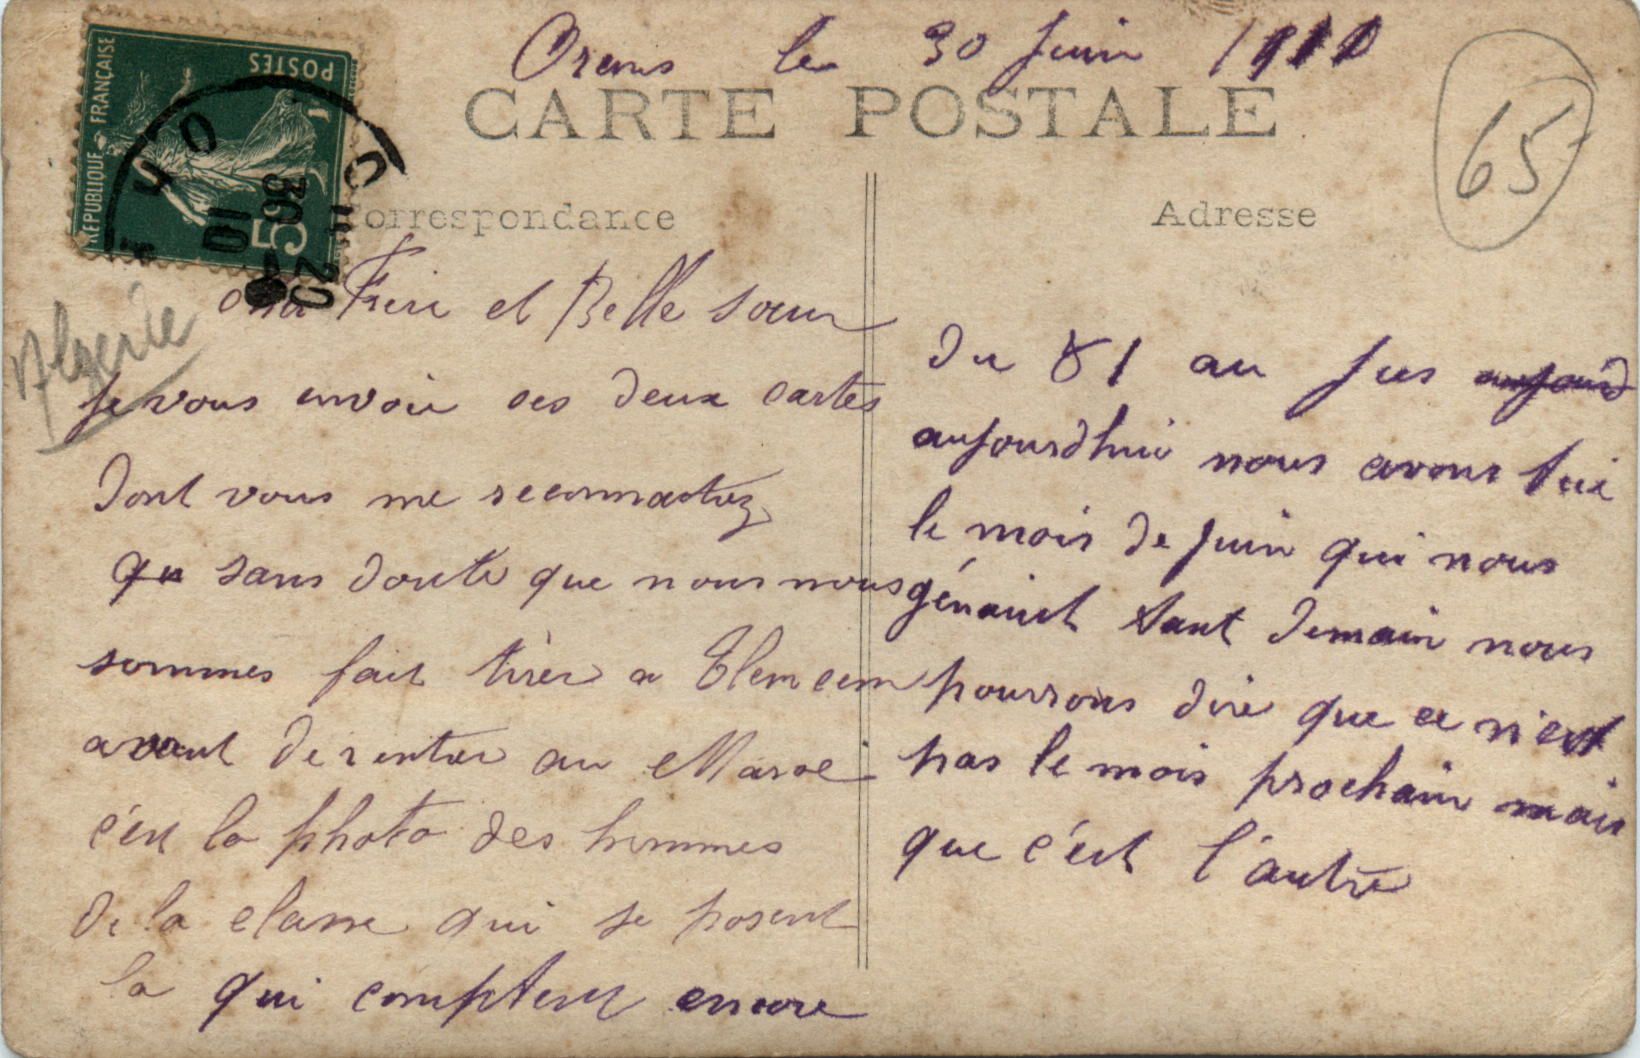 le 30 Juin 1910
CARTE POSTALE
65
REPUBLIQUE FRANÇAISE
POSTES
5c
30
10
20
Correspondance
Adresse
Algerie
Frere et Belle soeur
Je vous envoie ses deux cartes
Dont vous me reconnaitrez
qu sans doute que nous nous
sommes fait tirer a Tlemcem
avant de rentrer au Maroc
c'est la photo des hommes
de la classe qui se posent
la qui comptent encore
Du 81 au Jus aujourd
aujourdhui nous avons tué
le mois de Juin qui nous
génaint tant Demain nous
pourrons dire que ce n'est
pas le mois prochain mais
que c'est l'autre